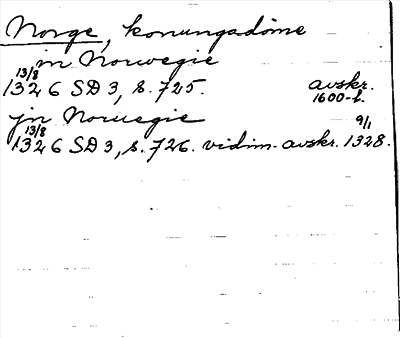 Norge, konungadöme
in Norwegie
13/8 1326 SD 3, s. 725. avskr. 1600-t.
jn Noruegie
13/8 1326 SD 3, s. 726. vidim. avskr. 9/1 1328.